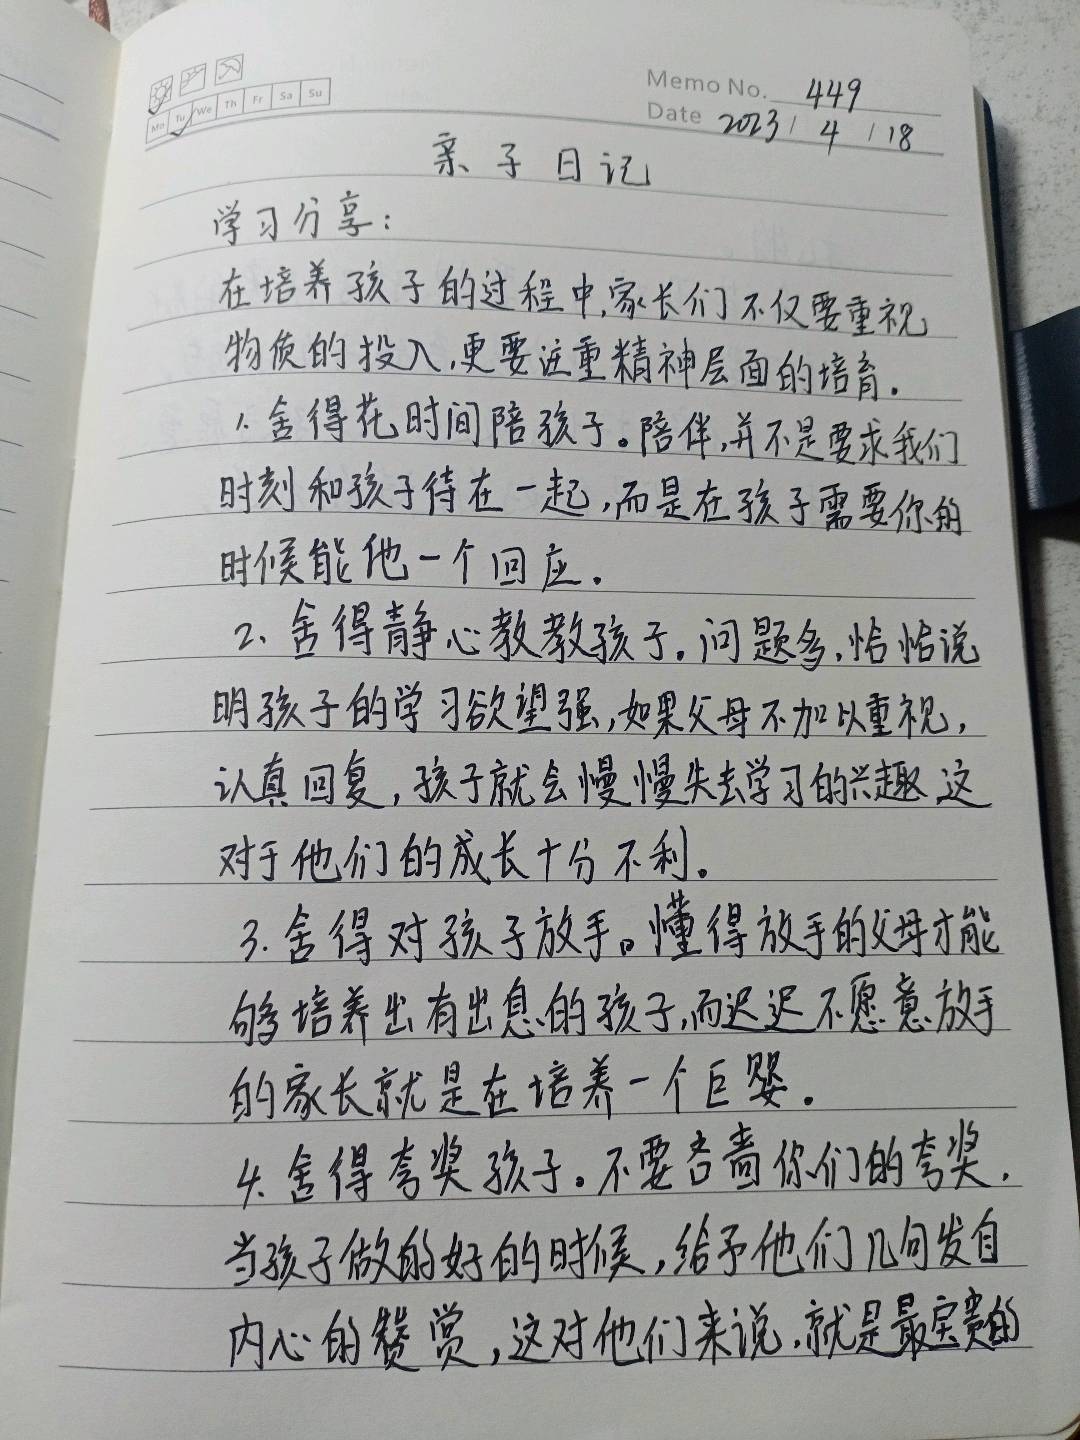 Memo No. 449
Mo Tu We Th Fr Sa Su
Date 2023 / 4 / 18
亲子日记
学习分享：
在培养孩子的过程中,家长们不仅要重视
物质的投入,更要注重精神层面的培育.
1.舍得花时间陪孩子。陪伴,并不是要求我们
时刻和孩子待在一起,而是在孩子需要你的
时候能他一个回应.
2、舍得静心教教孩子.问题多,恰恰说
明孩子的学习欲望强,如果父母不加以重视,
认真回复,孩子就会慢慢失去学习的兴趣,这
对于他们的成长十分不利。
3.舍得对孩子放手。懂得放手的父母才能
够培养出有出息的孩子,而迟迟不愿意放手
的家长就是在培养一个巨婴.
4.舍得夸奖孩子。不要吝啬你们的夸奖.
当孩子做的好的时候,给予他们几句发自
内心的赞赏,这对他们来说,就是最宝贵的